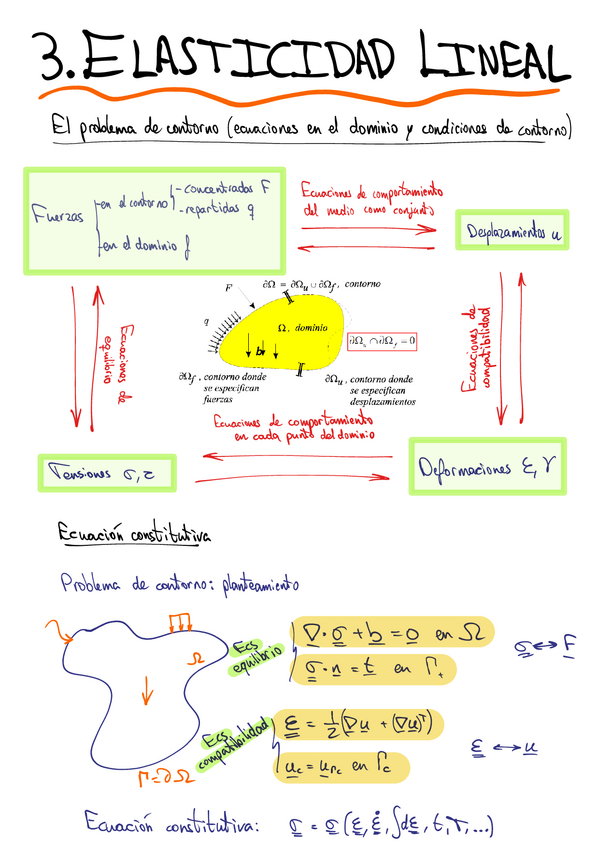 3. ELASTICIDAD LINEAL
El problema de contorno (ecuaciones en el dominio y condiciones de contorno)
Fuerzas
en el contorno
- concentradas F
- repartidas q
en el dominio f
Ecuaciones de comportamiento
del medio como conjunto
Desplazamientos u
Ecuaciones de
equilibrio
F
∂Ω = ∂Ωu ∪ ∂Ωf, contorno
q
Ω, dominio
b
∂Ωu ∩ ∂Ωf = 0
∂Ωf, contorno donde
se especifican
fuerzas
∂Ωu, contorno donde
se especifican
desplazamientos
Ecuaciones de
compatibilidad
Ecuaciones de comportamiento
en cada punto del dominio
Tensiones σ, τ
Deformaciones ε, γ
Ecuación constitutiva
Problema de contorno: planteamiento
Ω
Γ=∂Ω
Ecs
equilibrio
∇·σ + b = 0 en Ω
σ·n = t en Γt
σ ↔ F
Ecs
compatibilidad
ε = 1/2(∇u + (∇u)ᵀ)
uc = uΓc en Γc
ε ↔ u
Ecuación constitutiva: σ = σ(ε, ε̇, ∫dε, t, T, ...)